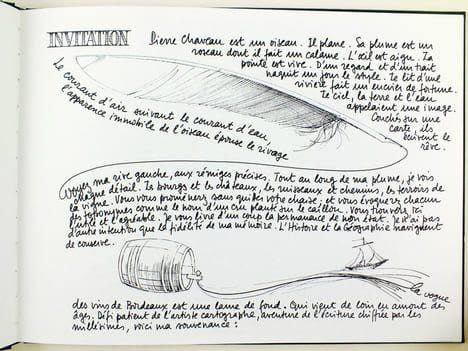 INVITATION
Pierre Chaveau est un oiseau. Il plane. Sa plume est un
roseau dont il fait un calame. L'œil est aigu. La
pointe est vive. D'un regard et d'un trait
naquit un jour le style. Le lit d'une
rivière fait un encrier de fortune.
Le ciel, la terre et l'eau
appelaient une image.
Couchés sur une
carte, ils
écrivent le
rêve.
Le courant d'air suivant le courant d'eau,
l'apparence immobile de l'oiseau épouse le rivage
voyez ma rive gauche, aux rémiges précises. Tout au long de ma plume, je vois
chaque détail. Les bourgs et les châteaux, les ruisseaux et chemins, les terroirs de
la vigne. Vous vous promènerez sans quitter votre chaise, et vous évoquerez chacun
des toponymes comme le nom d'un cru planté sur le caillou. Vous trouverez ici
l'utile et l'agréable. Je vous livre d'un coup la permanence de mon état. Je n'ai pas
d'autre intention que la fidélité de ma mémoire. L'Histoire et la Géographie naviguent
de conserve.
la vogue
des vins de Bordeaux est une lame de fond. Qui vient de loin en amont des
âges. Défi patient de l'artiste cartographe, aventure de l'écriture chiffrée par les
millésimes, voici ma souvenance :